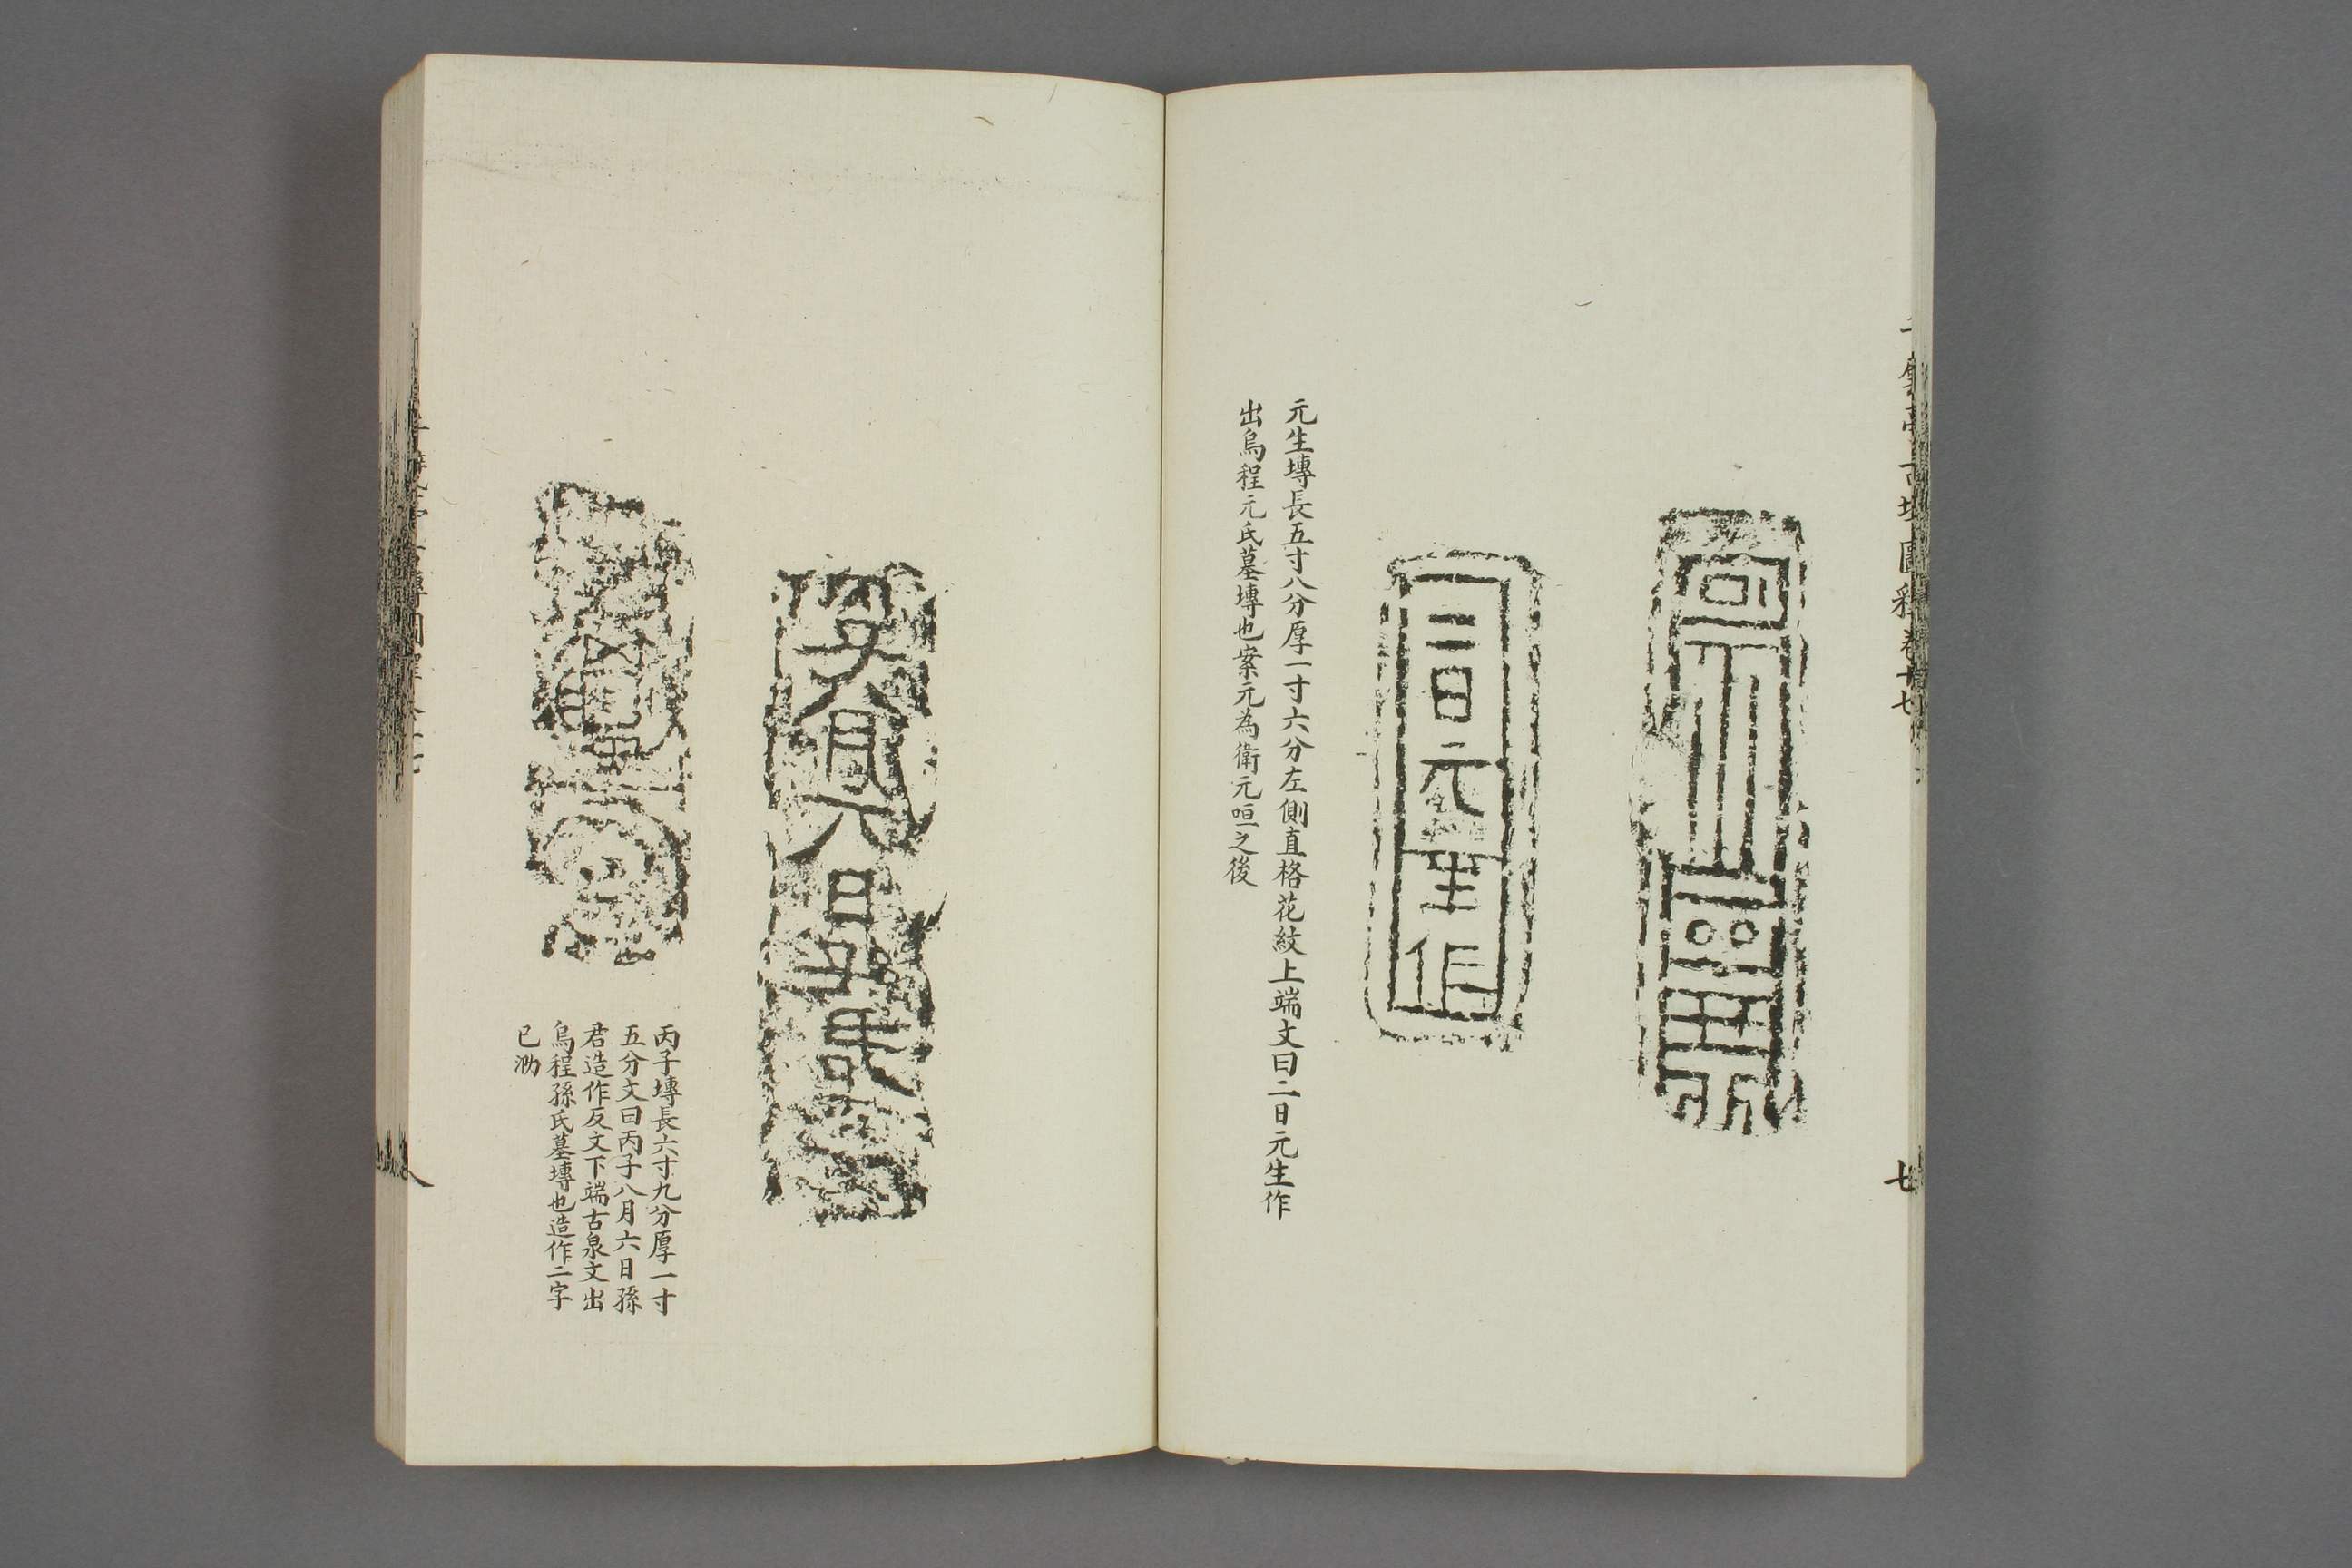 元生塼長五寸八分厚一寸六分左側直格花紋上端文曰二日元生作
出烏程元氏墓塼也案元為衛元咺之後
二日元生作
丙子塼長六寸九分厚一寸
五分文曰丙子八月六日孫
君造作反文下端古泉文出
烏程孫氏墓塼也造作二字
已泐
七